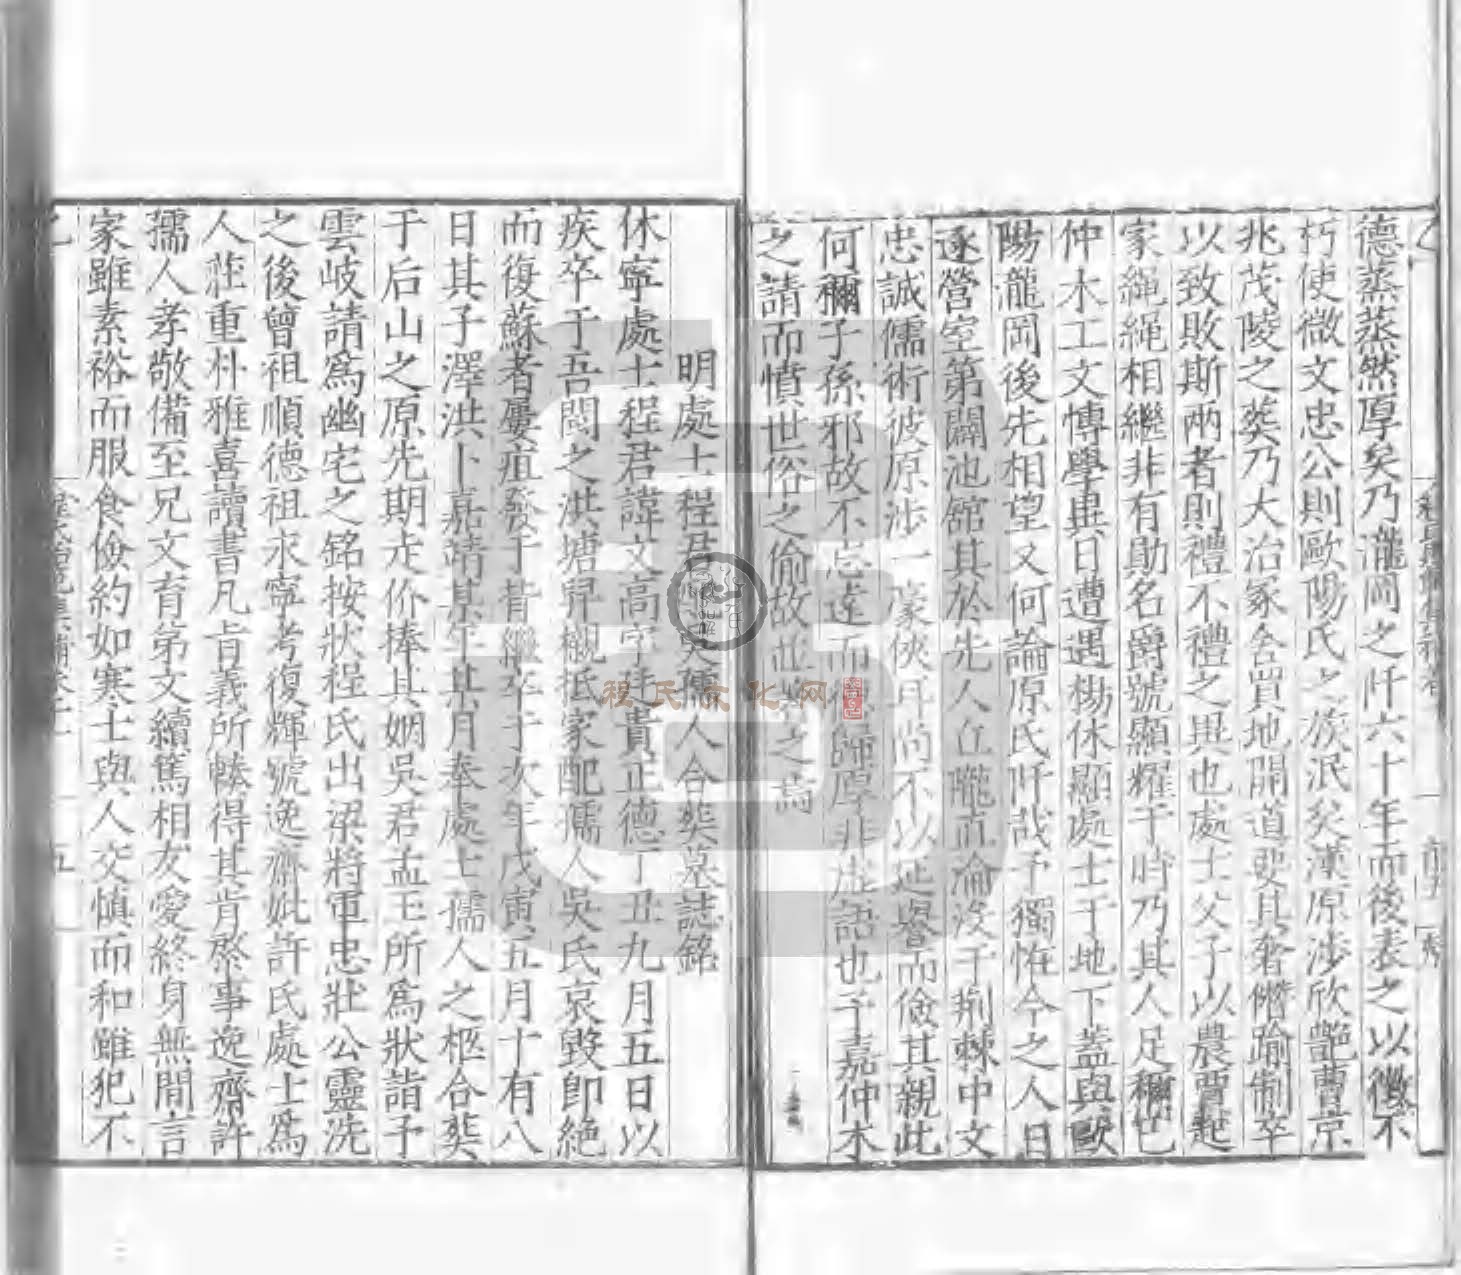 德蒸蒸然厚矣乃瀧岡之阡六十年而後表之以徵不
朽使微文忠公則歐陽氏之族泯矣漢原涉欣艶曹京
兆茂陵之葬乃大治冢舍買地開道娶其奢僭踰制卒
以致敗斯兩者則禮不禮之異也處士父子以農賈起
家繩繩相繼非有勛名爵號顯耀于時乃其人足稱已
仲木工文博學異日遭遇楊休顯處士于地下蓋與歐
陽瀧岡後先相望又何論原氏阡哉予獨悔今之人日
遂營室第闢池舘其於先人丘隴直淪没于荆棘中文
忠誠儒術彼原涉一豪俠耳尚不以延譽而儉其親此
何稱子孫邪故不忘遠而歸厚非虚語也予嘉仲木
之請而憤世俗之偷故並著之焉
明處士程君吳孺人合葬墓誌銘
休寧處士程君諱文高字時貴正德丁丑九月五日以
疾卒于吾閭之洪塘舁櫬抵家配孺人吳氏哀毀即絶
而復蘇者屢疽發于背繼卒于次年戊寅五月十有八
日其子澤洪卜嘉靖某年某月奉處士孺人之柩合葬
于后山之原先期走价捧其姻吳君孟玉所爲狀詣予
雲岐請爲幽宅之銘按狀程氏出梁將軍忠壯公靈洗
之後曾祖順德祖永寧考復輝號逸齋妣許氏處士爲
人莊重朴雅喜讀書凡肯義所輳得其肯綮事逸齋許
孺人孝敬備至兄文育弟文續篤相友愛終身無間言
家雖素裕而服食儉約如寒士與人交慎而和雖犯不
程氏文化网